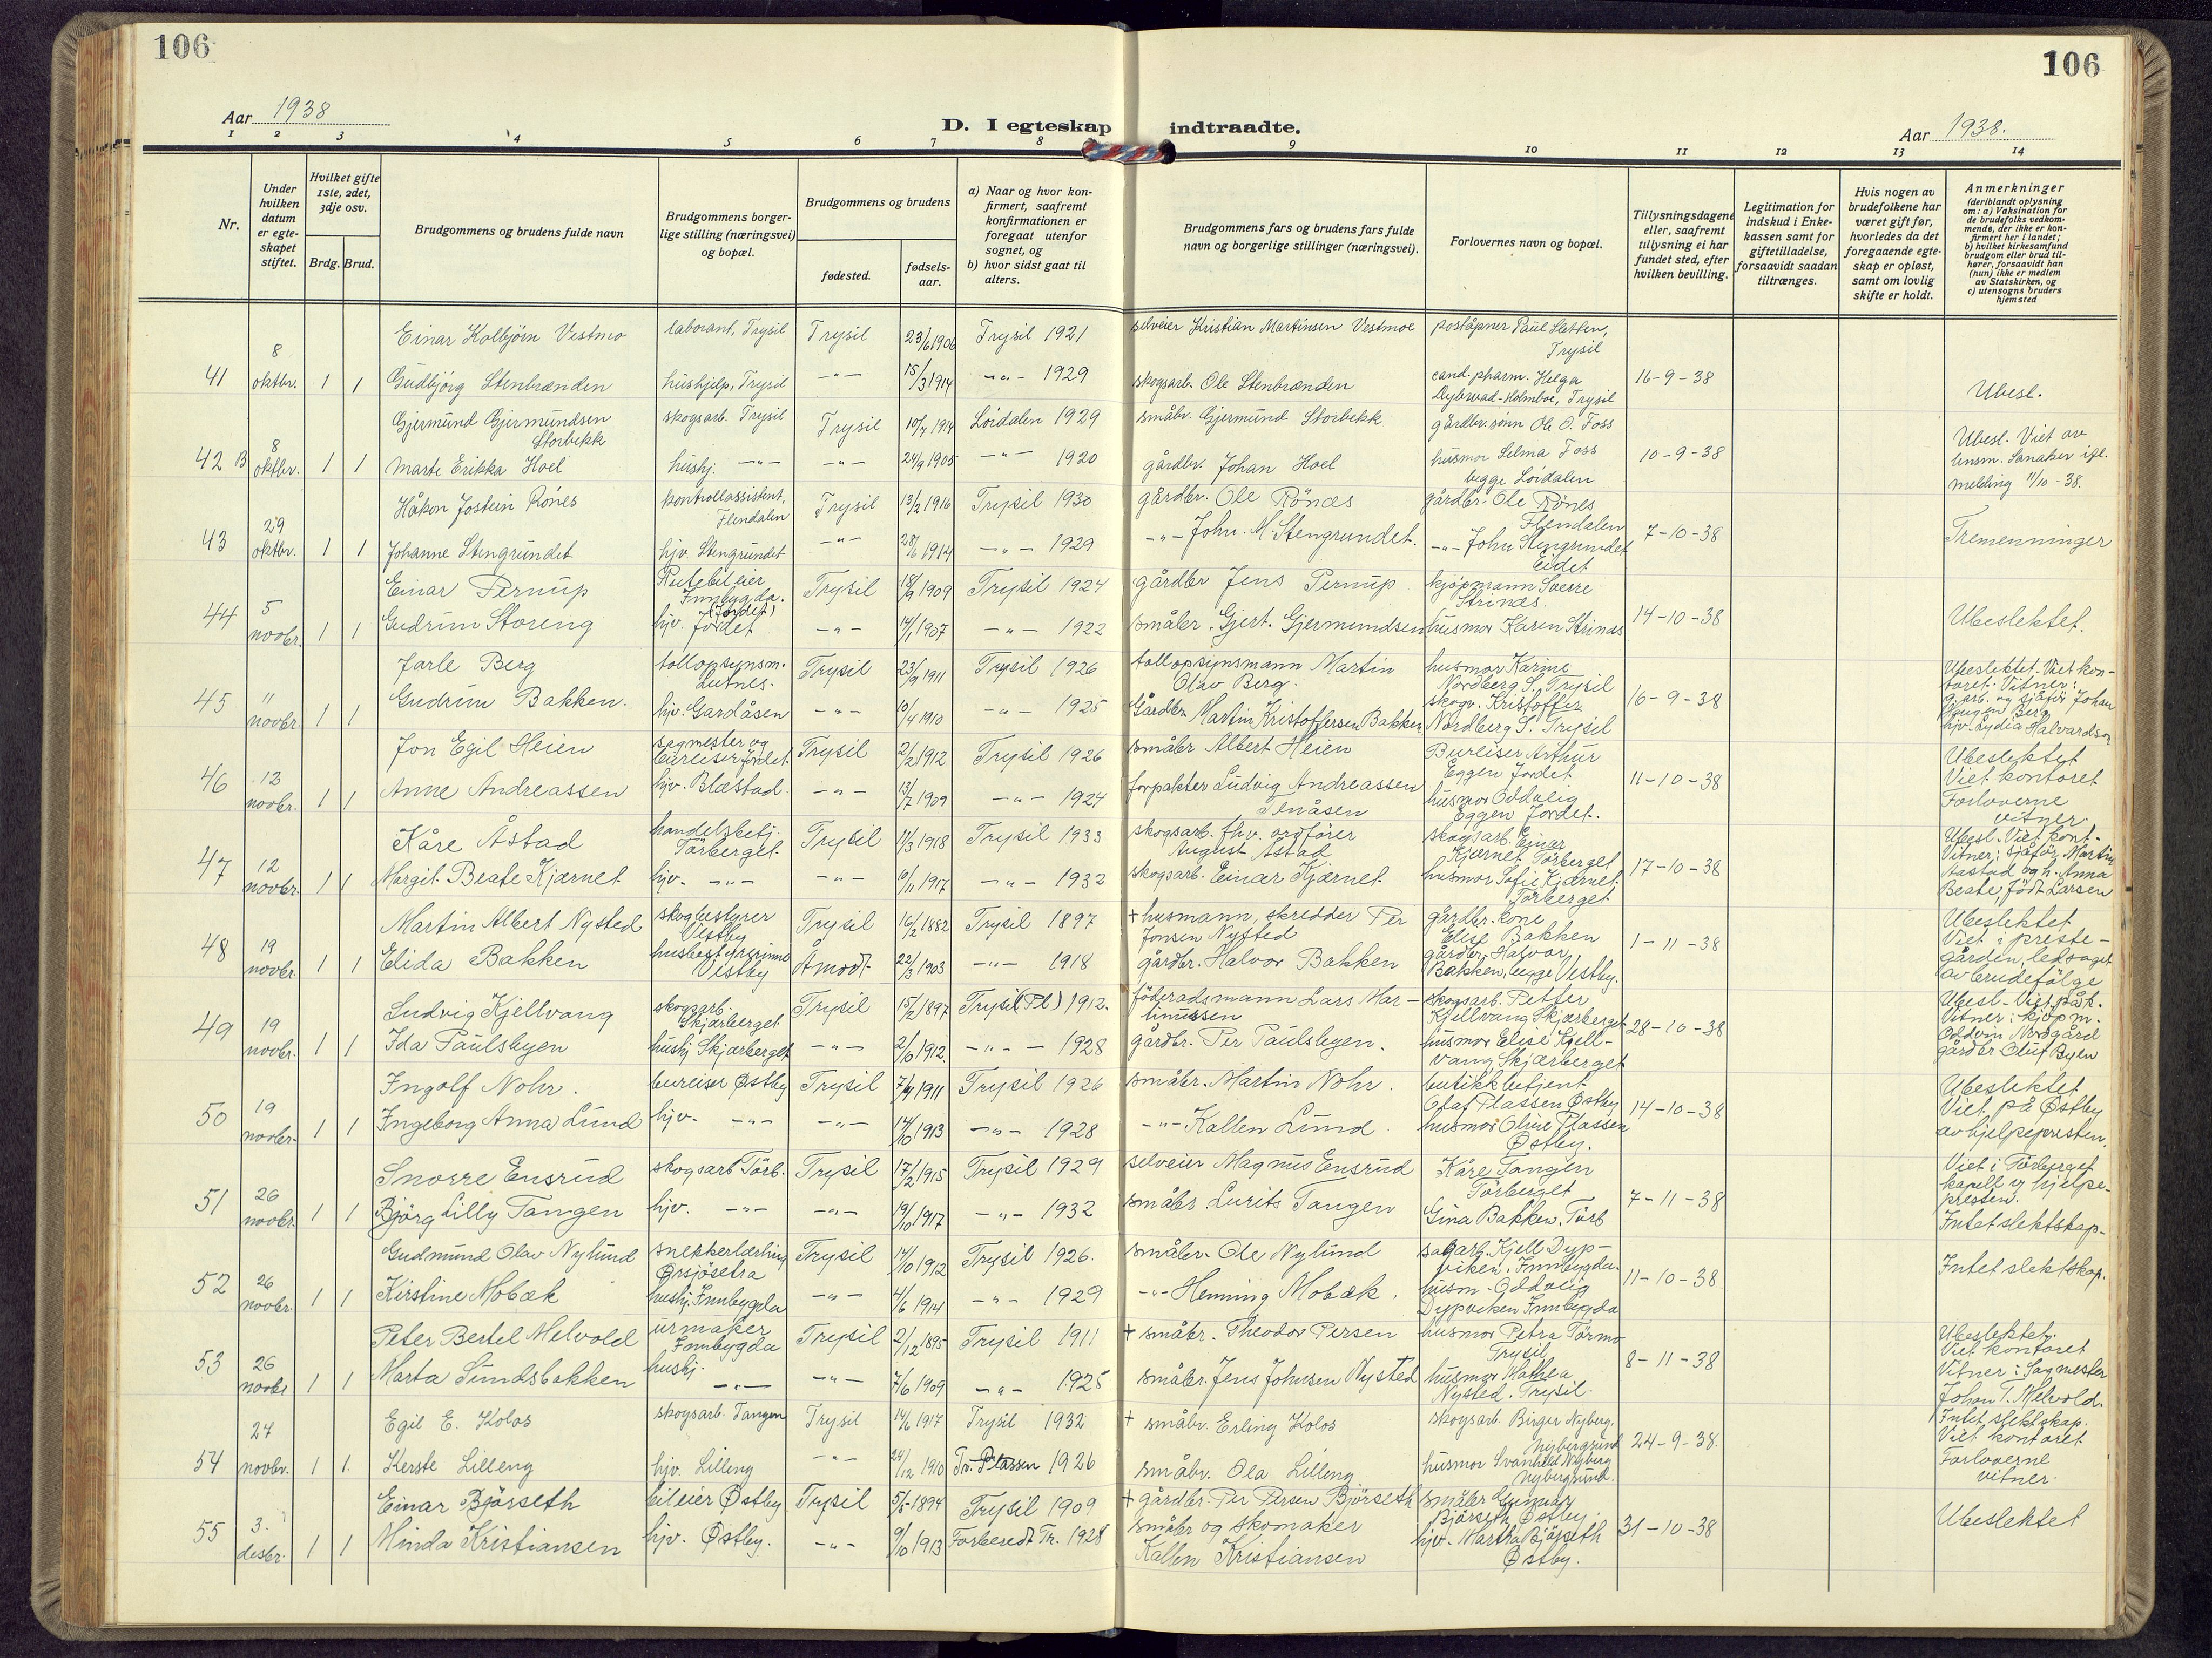 106
106
Aar 1938
D. I egteskap indtraadte.
Aar 1938.
1 2 3 4 5 6 7 8 9 10 11 12 13 14
Nr.
Under hvilken datum er egteskapet stiftet.
Hvilket gifte 1ste, 2det, 3dje osv.
Brdg. Brud.
Brudgommens og brudens fulde navn
Brudgommens borgerlige stilling (næringsvei) og bopæl.
Brudgommens og brudens
fødested.
fødselsaar.
a) Naar og hvor konfirmert, saafremt konfirmationen er foregaat utenfor sognet, og
b) hvor sidst gaat til alters.
Brudgommens fars og brudens fars fulde navn og borgerlige stillinger (næringsvei).
Forlovernes navn og bopæl.
Tillysningsdagene eller, saafremt tillysning ei har fundet sted, efter hvilken bevilling.
Legitimation for indskud i Enkekassen samt for giftetilladelse, forsaavidt saadan tiltrænges.
Hvis nogen av brudefolkene har været gift før, hvorledes da det foregaaende egteskap er opløst, samt om lovlig skifte er holdt.
Anmerkninger (deriblandt oplysning om: a) Vaksination for de brudefolks vedkommende, der ikke er konfirmert her i landet; b) hvilket kirkesamfund brudgom eller brud tilhører, forsaavidt han (hun) ikke er medlem av Statskirken, og c) utensogns bruders hjemsted
Einar Kolbjörn Vestmo laborant, Trysil Trysil 23/6 1906 Trysil 1921 selveier Kristian Martinsen Vestmoe poståpner Paul Sletten, Trysil
41 8 oktbr. 1 1 Gudbjörg Stenbrænden hushjelp, Trysil -"- 15/3 1914 -"- 1929 skogsarb. Ole Stenbrænden cand. pharm. Helga Dybwad-Holmboe, Trysil 16-9-38 Ubesl.
Gjermund Gjermundsen Storbekk skogsarb. Trysil Trysil 10/7 1914 Lördalen 1929 småbr. Gjermund Storbekk gårdbr. sönn Ole O. Foss
42 B 8 oktbr. 1 1 Marte Erikka Hoel hushj. -"- -"- 24/9 1905 -"- 1920 gårdbr. Johan Hoel husmor Selma Foss begge Lördalen 10-9-38 Ubesl. Viet av Sanaker melding 11/10-38.
Håkon Jostein Rönes kontrollassistent, Flendalen Trysil 13/2 1916 Trysil 1930 gårdbr. Ole Rönæs gårdbr. Ole Rönes Flendalen
43 29 oktbr. 1 1 Johanne Stengrundet hjv. Stengrundet -"- 28/6 1914 -"- 1929 -"- John M. Stengrundet. -"- John Stengrundet Eidet 7-10-38 Tremenninger
Einar Pernup Rutebileier Innbygda. (Jordet) Trysil 18/9 1909 Trysil 1924 gårdbr Jens Pernup kjöpmann Sverre Strinæs.
44 5 novbr. 1 1 Gudrun Storeng hjv. Jordet -"- 14/1 1907 -"- 1922 småbr. Gjert. Gjermundsen husmor Karen Strinæs 14-10-38 Ubeslektet.
Jarle Berg tollopsynsm. Lutnes. Trysil 23/9 1911 Trysil 1926 tollopsynsmann Martin Olav Berg. husmor Karine Nordberg S. Trysil
45 " novbr. 1 1 Gudrun Bakken. hjv. Gardåsen -"- 10/4 1910 -"- 1925 Gårdbr. Martin Kristoffersen Bakken skogv. Kristoffer Nordberg S. Trysil 16-9-38 Ubeslektet. Viet kontoret. Vitner: og sjåför Johan Haugen Berg hjv. Lydia Halvardson
Jon Egil Heien sagmester og bureiser Jordet Trysil 2/2 1912 Trysil 1926 småbr Albert Heien Bureiser Arthur Eggen Jordet
46 12 novbr. 1 1 Anne Andreassen hjv. Blæstad. -"- 13/7 1909 -"- 1924 forpakter Ludvig Andreassen husmor Oddveig Eggen Jordet. 11-10-38 Ubeslektet Viet kontoret Forloverne vitner.
Kåre Åstad handelsbetj. Törberget Trysil 11/3 1918 Trysil 1933 skogsarb. fhv. ordförer August Åstad skogsarb. Einar Kjærnet Törberget
47 12 novbr. 1 1 Margit Beate Kjærnet hjv. -"- -"- 10/11 1917 -"- 1932 skogsarb. Einar Kjærnet husmor Sofie Kjærnet Törberget 17-10-38 Ubesl. Viet kont. Vitner; sjåför Martin Aastad og h. Anna Beate, födt Larsen
Martin Albert Nysted skogbestyrer Vestby Trysil 16/2 1882 Trysil 1897 + husmann, skredder Per Jonsen Nysted gårdbr. kone Elise Bakken
48 19 novbr. 1 1 Elida Bakken husbestyrerinne Vestby Åmodt 22/3 1903 -"- 1918 gårdbr. Halvor Bakken gårdbr. Halvor Bakken, begge Vestby. 1-11-38 Ubeslektet Viet i prestegården, ledsaget av brudefölge
Ludvig Kjellvang skogsarb. Skjærberget Trysil 15/2 1897 Trysil (Pl) 1912. föderadsmann Lars Martinussen skogsarb. Petter Kjellvang Skjærberget
49 19 novbr. 1 1 Ida Paulsbyen hushj Skjærberget -"- 2/6 1912. -"- 1928 gårdbr. Per Paulsbyen. husmor Elise Kjellvang Skjærberget 28-10-38 Ubesl. Viet på k. Vitner: kjöpm. Oddvin Nordgård gårdbr Oluf Byen
Ingolf Nohr. bureiser Østby Trysil 7/9 1911 Trysil 1926 småbr. Martin Nohr. butikkbetjent Olaf Plassen Østby
50 19 novbr. 1 1 Ingeborg Anna Lund hjv. -"- -"- 14/10 1913 -"- 1928 -"- Kallen Lund. husmor Oline Plassen Østby. 14-10-38 Ubeslektet Viet på Østby av hjelpepresten.
Snorre Ensrud skogsarb Törb. Trysil 17/2 1915 Trysil 1929 selveier Magnus Ensrud Kåre Tangen Törberget
51 26 novbr. 1 1 Björg Lilly Tangen hjv. -"- -"- 19/10 1917 -"- 1932 småbr. Lurits Tangen Gina Bakken. Törb 7-11-38 Viet i Törberget kapell av hjelpepresten. Intet slektskap.
Gudmund Olav Nylund snekkerlærling Ørsjösetra Trysil 14/10 1912 Trysil 1926. småbr. Ole Nylund sagarb. Kjell Dypviken. Innbygda.
52 26 novbr. 1 1 Kirstine Mobæk hushj. Innbygda -"- 4/6 1914 -"- 1929 -"- Henning Mobæk. husm. Oddveig Dypviken Innbygda 11-10-38 Intet slektskap.
Peter Bertel Melvold urmaker Innbygda Trysil 2/12 1895 Trysil 1911 + småbr. Theodor Persen husmor Petra Törmo Trysil
53 26 novbr 1 1 Marta Sundsbakken hushj. -"- -"- 7/6 1909 -"- 1925 småbr. Jens Johnsen Nysted husmor Mathea Nysted. Trysil. 8-11-38 Ubeslektet. Viet kontoret Vitner: Sagmester Johan T. Melvold.
Egil E. Kolos skogsarb. Tangen Trysil 14/6 1917 Trysil 1932 + småbr. Erling Kolos skogsarb. Birger Nyberg, Nybergsund
54 27 novbr. 1 1. Kerste Lilleng hjv. Lilleng -"- 24/12 1910 Tr. Plassen 1926 småbr. Ola Lilleng husmor Svanhild Nyberg Nybergsund. 24-9-38. Intet slektskap. Viet kontoret Forloverne vitner.
Einar Björseth bileier Østby Trysil 5/5 1894 Trysil 1909 + gårdbr. Per Persen Björseth småbr Gunnar Björseth Østby
55 3. desbr. 1 1 Minda Kristiansen hjv. Østby. -"- 9/10 1913 Forberedt Tr. 1928 småbr og skomaker Kallen Kristiansen hjv. Martha Björseth Østby. 31-10-38 Ubeslektet